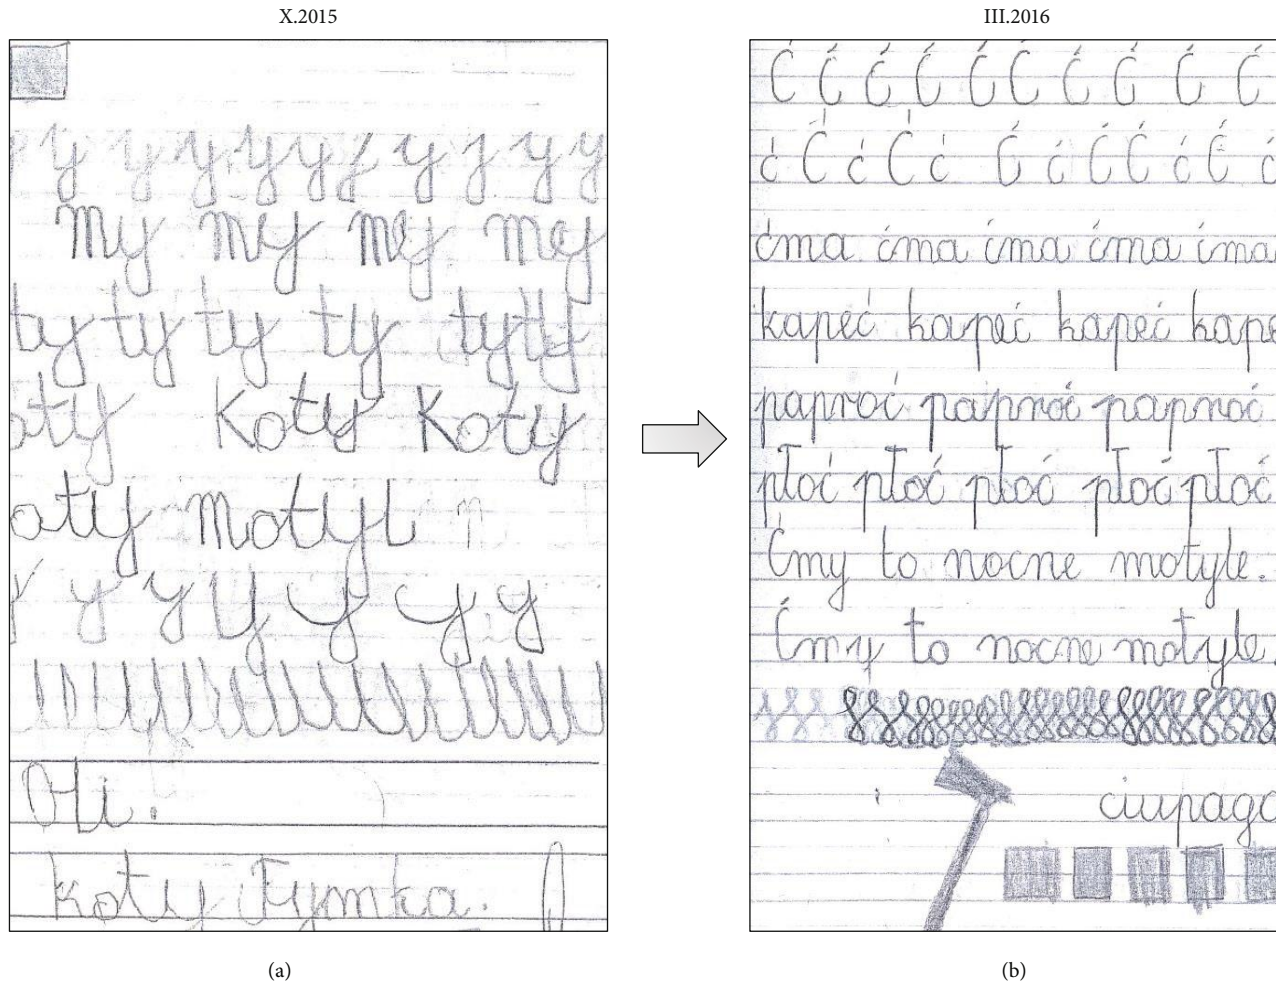 X.2015
y y y y y y y y y y
my my my my
ty ty ty ty ty ty
oty Koty Koty
oty motyl
y y y y y y y
Oli.
koty Tymka.
(a)
III.2016
Ć Ć Ć Ć Ć Ć Ć Ć Ć Ć
ć Ć ć Ć ć Ć ć Ć Ć ć Ć ć
ćma ćma ćma ćma ćma
kapeć kapeć kapeć kape
paproć paproć paproć
płoć płoć płoć płoć płoć
Ćmy to nocne motyle.
Ćmy to nocne motyle.
ciupaga
(b)